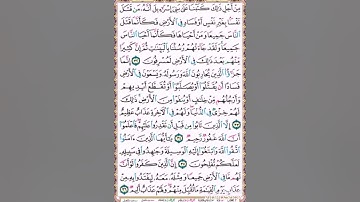 مِنْ أَجْلِ ذَٰلِكَ كَتَبْنَا عَلَىٰ بَنِىٓ إِسْرَٰٓءِيلَ أَنَّهُۥ مَن قَتَلَ
نَفْسًۢا بِغَيْرِ نَفْسٍ أَوْ فَسَادٍ فِى ٱلْأَرْضِ فَكَأَنَّمَا قَتَلَ
ٱلنَّاسَ جَمِيعًا وَمَنْ أَحْيَاهَا فَكَأَنَّمَآ أَحْيَا ٱلنَّاسَ
جَمِيعًا وَلَقَدْ جَآءَتْهُمْ رُسُلُنَا بِٱلْبَيِّنَٰتِ ثُمَّ إِنَّ كَثِيرًا
مِّنْهُم بَعْدَ ذَٰلِكَ فِى ٱلْأَرْضِ لَمُسْرِفُونَ ٣٢ إِنَّمَا
جَزَٰٓؤُا۟ ٱلَّذِينَ يُحَارِبُونَ ٱللَّهَ وَرَسُولَهُۥ وَيَسْعَوْنَ فِى ٱلْأَرْضِ
فَسَادًا أَن يُقَتَّلُوٓا۟ أَوْ يُصَلَّبُوٓا۟ أَوْ تُقَطَّعَ أَيْدِيهِمْ
وَأَرْجُلُهُم مِّنْ خِلَٰفٍ أَوْ يُنفَوْا۟ مِنَ ٱلْأَرْضِ ذَٰلِكَ
لَهُمْ خِزْىٌ فِى ٱلدُّنْيَا وَلَهُمْ فِى ٱلْءَاخِرَةِ عَذَابٌ عَظِيمٌ
٣٣ إِلَّا ٱلَّذِينَ تَابُوا۟ مِن قَبْلِ أَن تَقْدِرُوا۟ عَلَيْهِمْ فَٱعْلَمُوٓا۟
أَنَّ ٱللَّهَ غَفُورٌ رَّحِيمٌ ٣٤ يَٰٓأَيُّهَا ٱلَّذِينَ ءَامَنُوا۟
ٱتَّقُوا۟ ٱللَّهَ وَٱبْتَغُوٓا۟ إِلَيْهِ ٱلْوَسِيلَةَ وَجَٰهِدُوا۟ فِى سَبِيلِهِۦ
لَعَلَّكُمْ تُفْلِحُونَ ٣٥ إِنَّ ٱلَّذِينَ كَفَرُوا۟ لَوْ أَنَّ
لَهُم مَّا فِى ٱلْأَرْضِ جَمِيعًا وَمِثْلَهُۥ مَعَهُۥ لِيَفْتَدُوا۟ بِهِۦ مِنْ
عَذَابِ يَوْمِ ٱلْقِيَٰمَةِ مَا تُقُبِّلَ مِنْهُمْ وَلَهُمْ عَذَابٌ أَلِيمٌ ٣٦